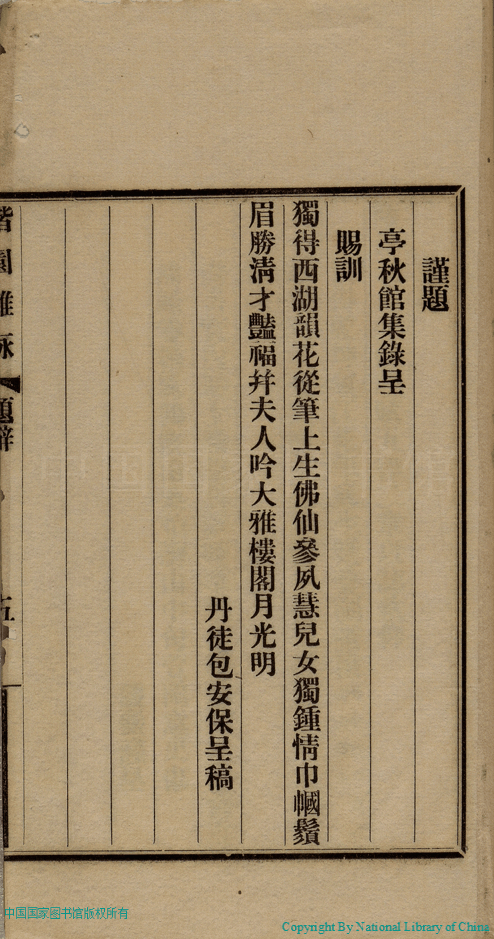 謹題
亭秋館集錄呈
賜訓
獨得西湖韻花從筆上生佛仙參夙慧兒女獨鍾情巾幗鬚
眉勝淸才豔福幷夫人吟大雅樓閣月光明
丹徒包安保呈稿
題辭
中国国家图书馆版权所有
Copyright By National Library of China